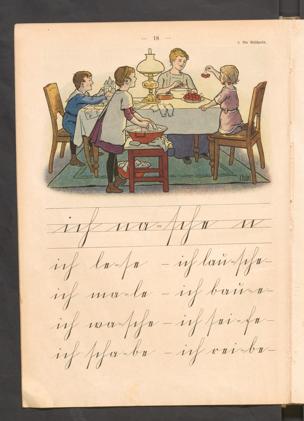 — 18 —
ich na-sche n
ich le-se – ich lau-sche-
ich ma-le – ich bau-e-
ich wa-sche – ich sei-fe-
ich scha-be – ich rei-be-